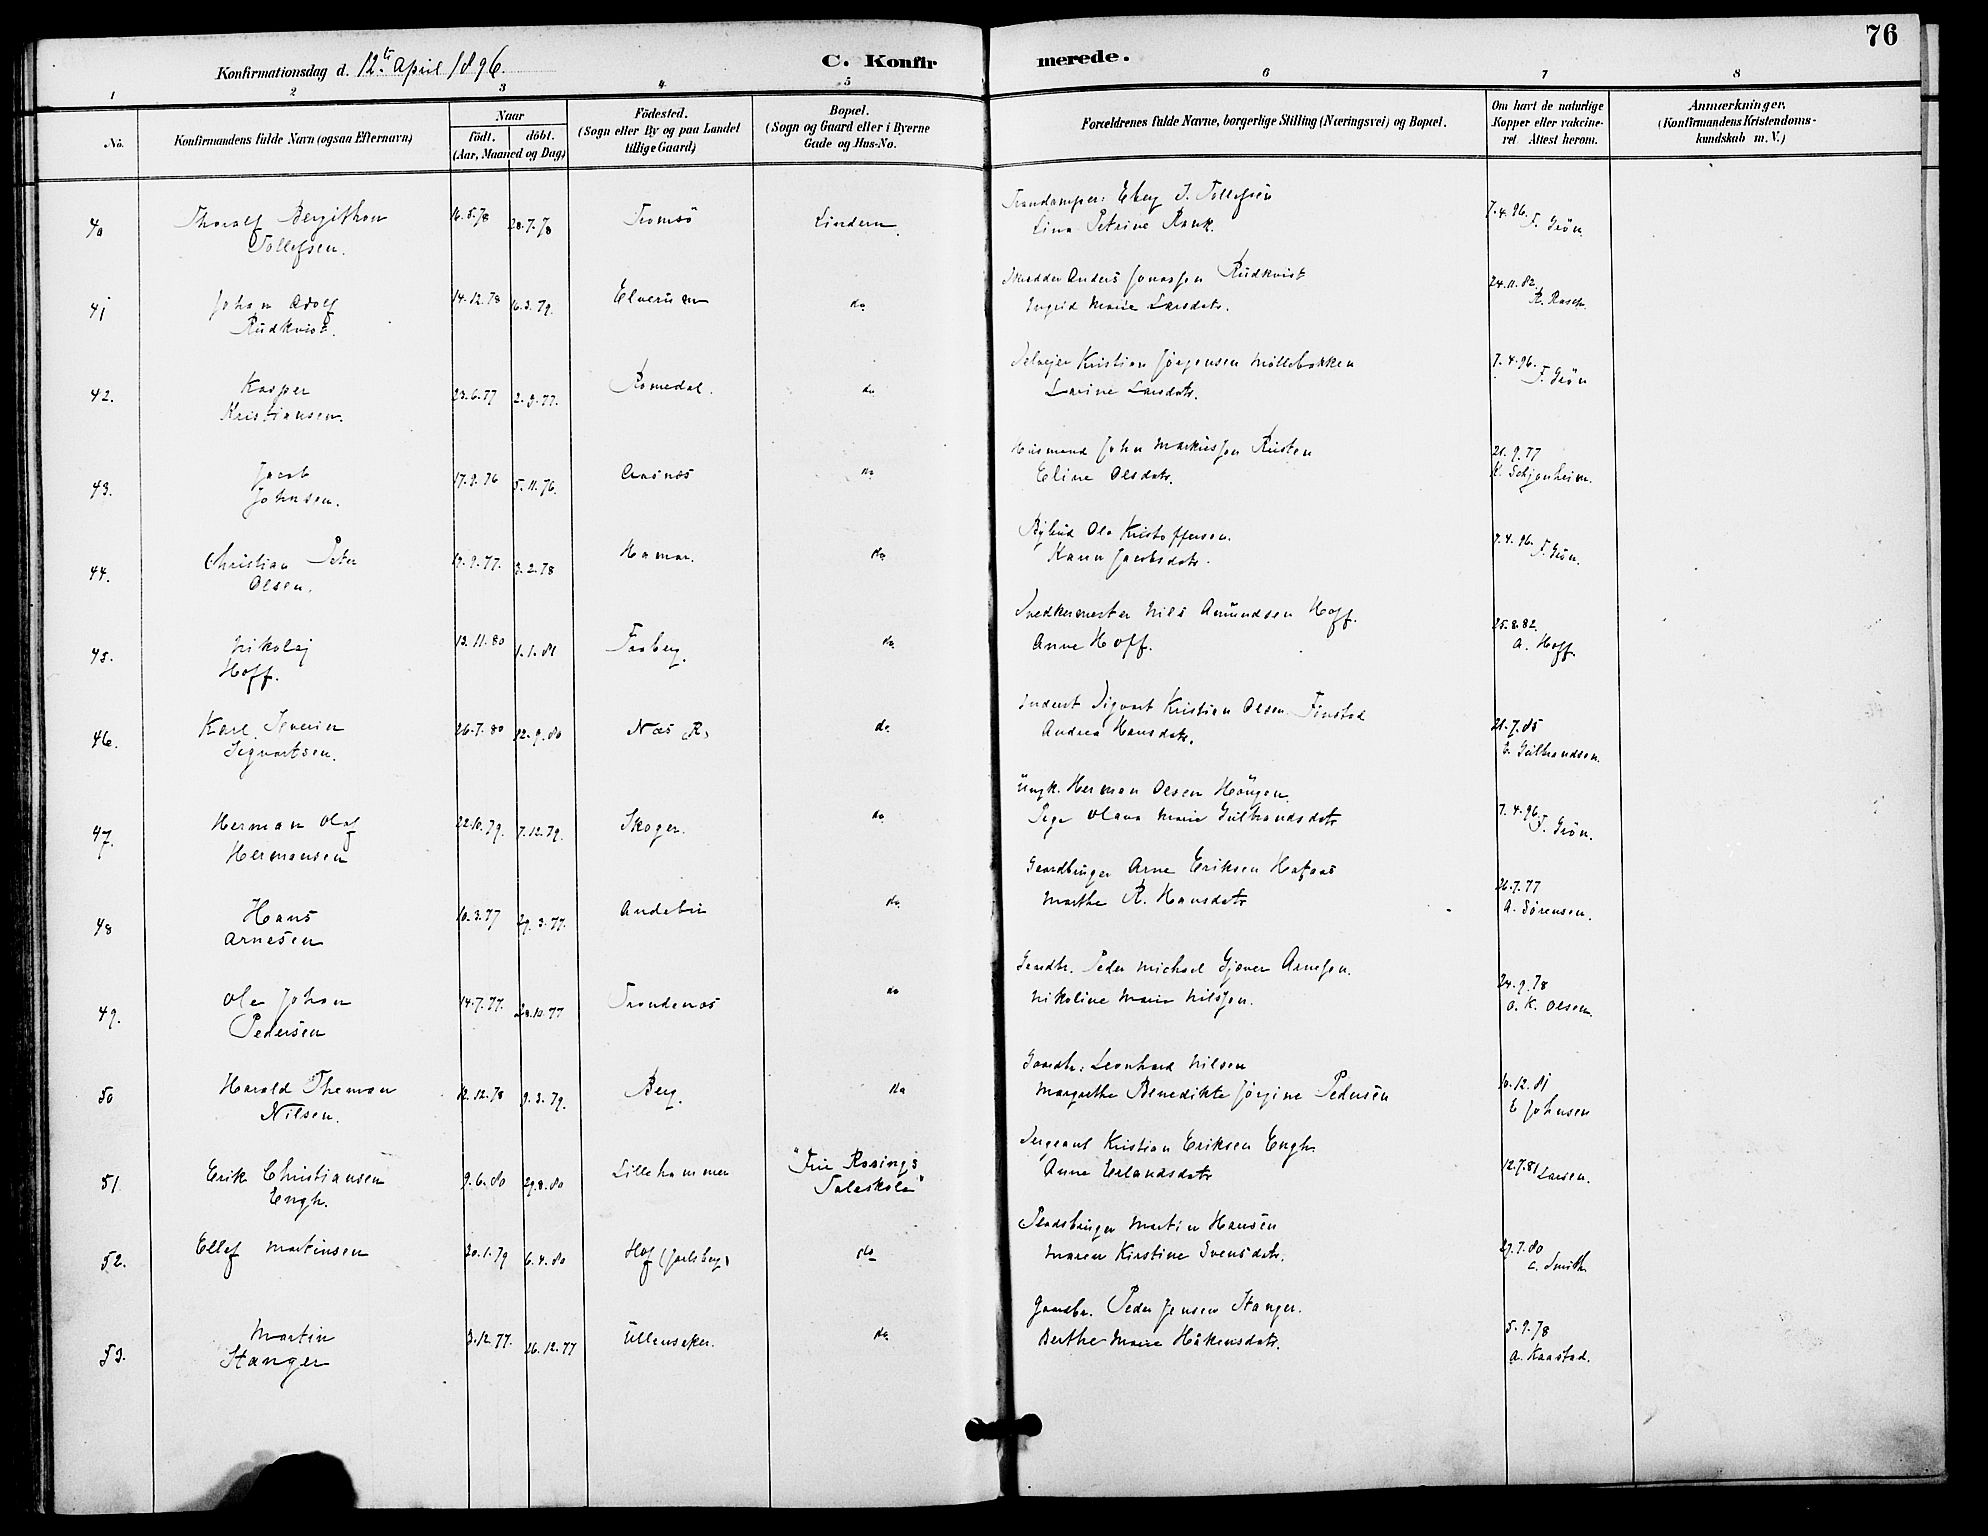 76
Konfirmationsdag d. 12te April 1896.
C. Konfirmerede.
1 2 3 4 5 6 7 8
No.
Konfirmandens fulde Navn (ogsaa Efternavn)
Naar
födt. döbt.
(Aar, Maaned og Dag)
Födested.
(Sogn eller By og paa Landet
tillige Gaard)
Bopæl.
(Sogn og Gaard eller i Byerne
Gade og Hus-No.
Forældrenes fulde Navne, borgerlige Stilling (Næringsvei) og Bopæl.
Om havt de naturlige
Kopper eller vakcine-
ret Attest herom.
Anmærkninger.
(Konfirmandens Kristendoms-
kundskab m. V.)
40 Thoralf Bergithon 16.5.78 28.7.78 Tromsö Lindern. J. Tollefsen 7.4.96.
Tollefsen. Lina Petrine Rank. F. Grön.
41 Johan Adolf 14.12.78 6.3.79. Elverum do. Skrædder Anders Jonassen Rudkvist 24.11.82
Rudkvist. Ingrid Marie Larsdatr. R. Rasch.
42. Kasper 23.6.77 2.9.77. Romedal. do. Selvejer Kristian Jörgensen Möllebakken 7.4.96.
Kristiansen. Larine Larsdatr. F. Grön
43. Jacob 17.9.76 5.11.76. Aasnæs do Husmand John Markussen Rusten 21.9.77
Johnsen. Eline Olsdatr. K. Schjonheim.
44. Christian Peter 17.9.77. 3.2.78 Hamar. do Bybud Ole Kristoffersen. 7.4.96.
Olsen. Karen Jacobsdatr. F. Grön.
45. Nikolaj 13.11.80 1.1.81 Faaberg. do. Snedkermester Nils Amundsen Hoff. 25.8.82.
Hoff. Anne Hoff. A. Hoff.
46. Karl Severin 26.7.80 12.9.80 Næs (R) do. Inderst Sigvart Kristian Olsen Finstad 21.7.85
Sigvartsen. Andrea Hansdatr. Gulbrandsen.
47. Herman Olaf 22.10.79. 7.12.79. Skoger. do. Ungk. Herman Olsen Haugen. 7.4.96.
Hermansen Pige Olava Marie Gulbrandsdatr F. Grön.
48 Hans 10.3.77 29.3.77. Andebu do. Gaardbruger Arne Eriksen Hafaas 26.7.77
Arnesen Marthe R. Hansdatr A. Sörensen.
49. Ole Johan 14.7.77. 28.10.77 Trondenæs do Gaardbr. Peder Michael Gjæver Arnesen. 24.9.78
Pedersen Nikoline Marie Nilssen. O. K. Olsen.
50 Harald Theman 12.12.78 9.3.79. Berg. do Gaardbr: Leonhard Nilsen 10.12.81
Nilsen. Margrethe Benedikte Jörgine Pedersen E Johnsen
51. Erik Christiansen 9.6.80 29.8.80 Lillehammer "Fru Rosings Sergeant Kristian Eriksen Engh 12.7.81
Engh. Taleskole" Anne Erlandsdatr Larsen.
52. Ellef Martinsen 20.1.79 6.4.80 Hof (Jarlsberg) do Pladsbruger Martin Hansen 29.7.80
Maren Kirstine Svensdatr. C. Smith.
53. Martin 3.12.77. 26.12.77 Ullensaker. do. Gaardbr. Peder Jensen Stanger. 5.9.78
Stanger Berthe Marie Håkensdatr. A. Kaastad.